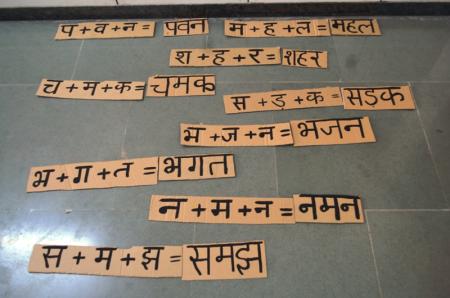 प + व + न = पवन
म + ह + ल = महल
श + ह + र = शहर
च + म + क = चमक
स + ड़ + क = सड़क
भ + ज + न = भजन
भ + ग + त = भगत
न + म + न = नमन
स + म + झ = समझ